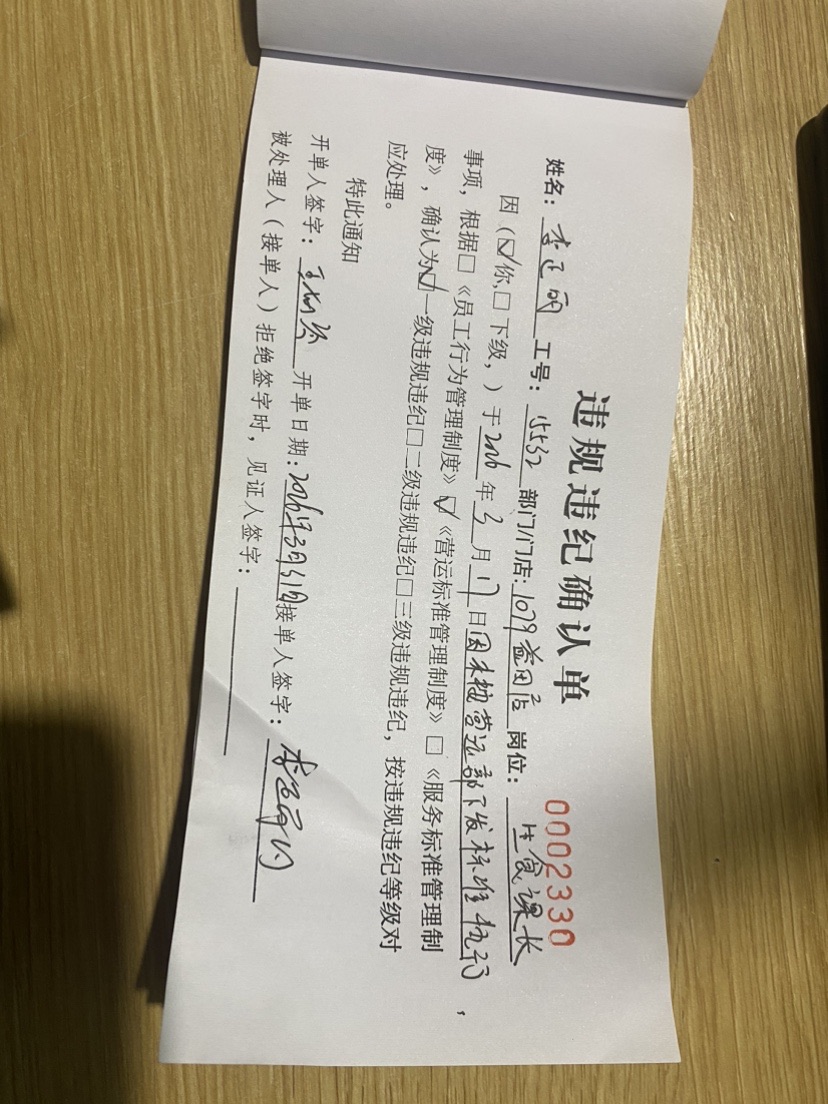 违规违纪确认单
0002330
姓名：李正 工号：15532 部门/门店：1079益田店 岗位：生食课长
因（☑你，□下级，）于2026年3月17日因未按营运部下发标准执行，
事项，根据□《员工行为管理制度》☑《营运标准管理制度》□《服务标准管理制
度》，确认为☑一级违规违纪□二级违规违纪□三级违规违纪，按违规违纪等级对
应处理。
特此通知
开单人签字： 开单日期：2026年3月31日接单人签字：
被处理人（接单人）拒绝签字时，见证人签字：